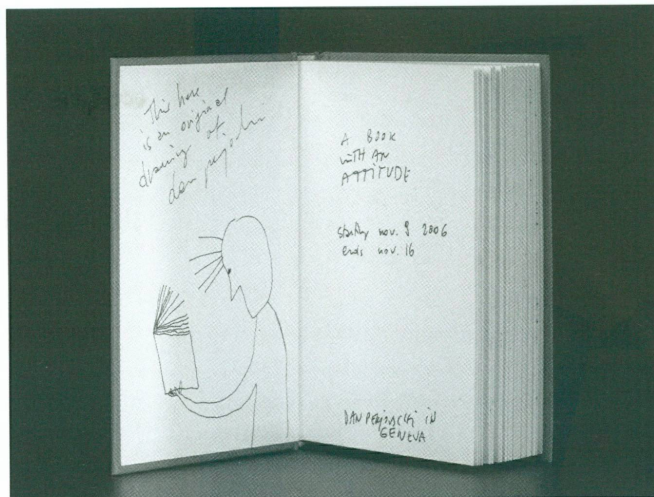 This here
is an original
drawing of
dan perjovschi
A BOOK
WITH AN
ATTITUDE
starting nov. 9 2006
ends nov. 16
DAN PERJOVSCHI IN
GENEVA